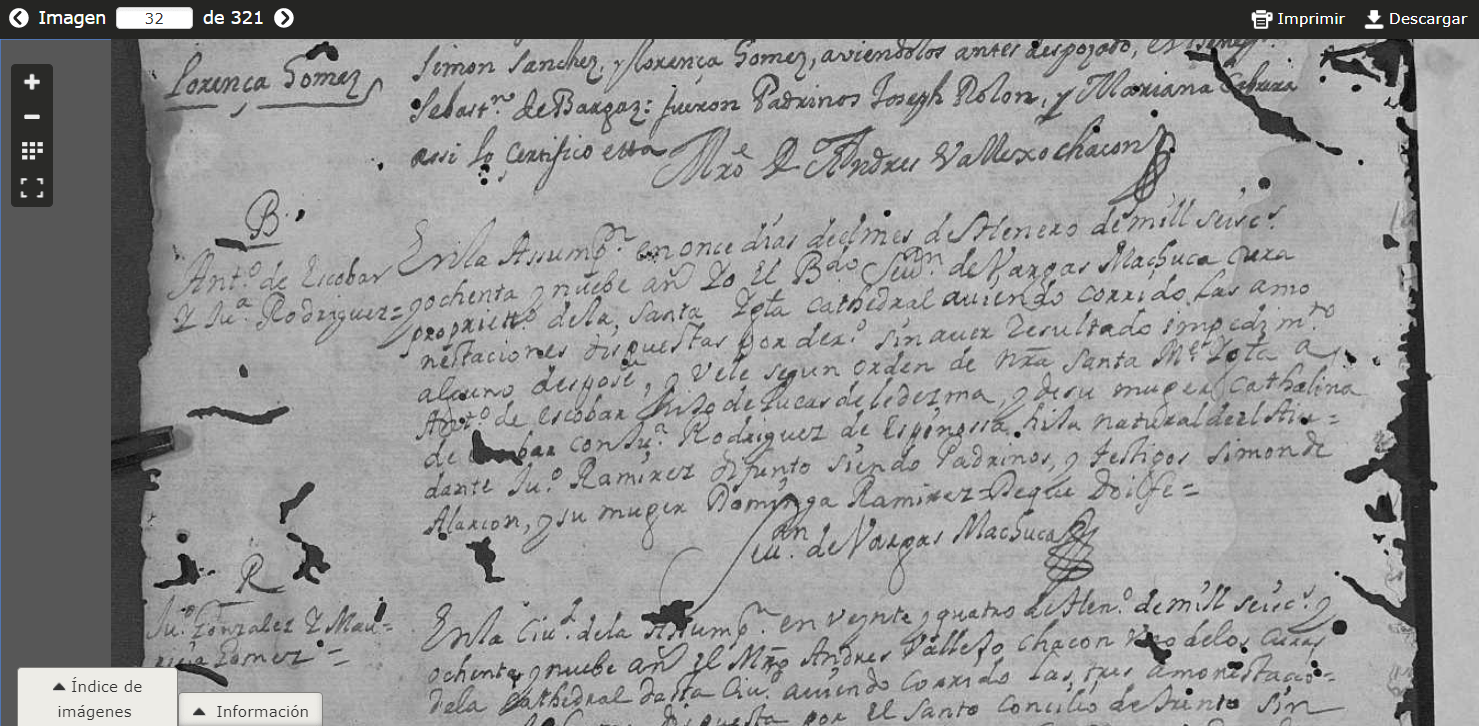 Imagen 32 de 321
Imprimir Descargar
Lorença Gomez
Simon Sanchez, y lorença Gomez, aviendolos antes despozado, el
Sebast.no de Bargaz: fueron Padrinos Joseph Rolon, y Mariana Cabrera
assi lo certifico etta
Mro D Andres Vallexo chacon
B
Ant.o de Escobar
Y Ju.a Rodriguez=
En la Assump.n en once dias del mes de Henero de mill seisc.s
y ochenta y nuebe añ Yo El B.do de Vargas Machuca cura
propriett.o dela Santa Ygta Cathedral auiendo corrido las amo
nestaciones dispuestas por der.o sin auer resultado impedim.to
alguno despose, y vele segun orden de nra Santa M.e Ygta a
Ant.o de Escobar hijo de Lucas de ledezma, y de su muger Cathalina
de con Ju.a Rodriguez de Espinossa hija natural del
dante Ju.o Ramirez difunto siendo Padrinos, y testigos Simon de
Alarcon, y su muger Dominga Ramirez= Deque Doi fe=
de Vargas Machuca
R
Ju.o Gonzalez Y Mau=
Gomez=
En la Ciu.d dela Assump.n en veynte y quatro de Hen.o de mill seisc.s y
ochenta y nuebe añ el Mro Andres Vallejo chacon vno delos curas
dela Cathedral dasta Ciu. auiendo corrido las tres amonestacio=
por El Santo Concilio de Trento Sin
Índice de imágenes
Información